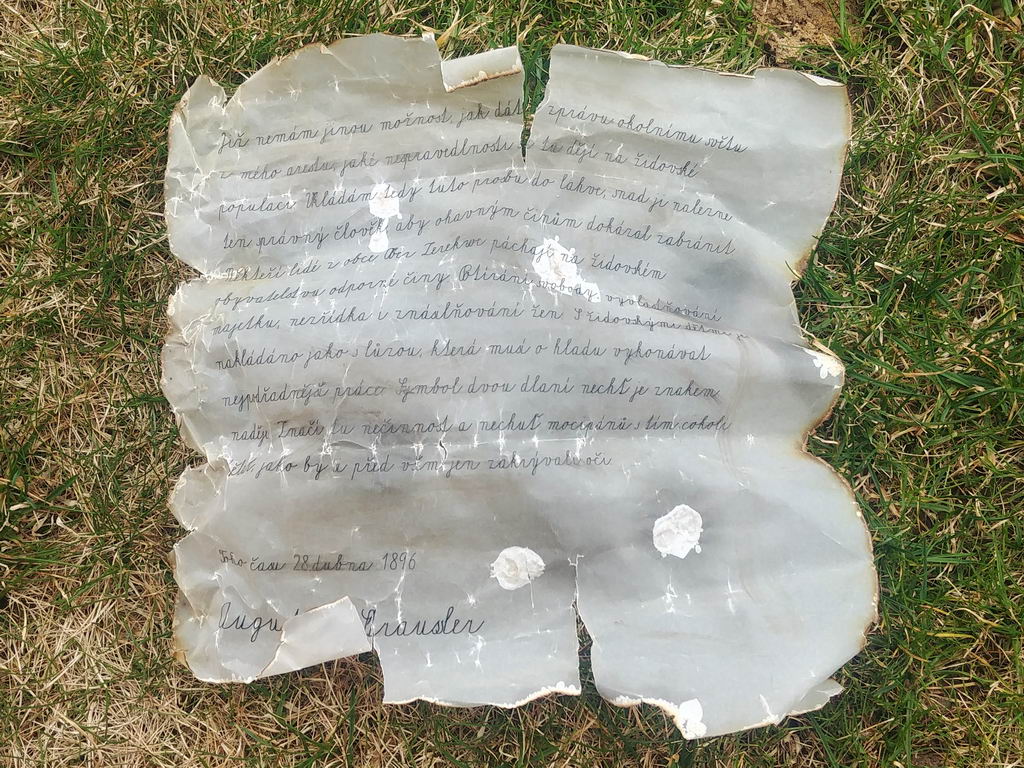 Již nemám jinou možnost, jak dát zprávu okolnímu světu
z mého arestu, jaké nepravedlnosti se tu dějí na židovské
populaci. Vkládám tedy tuto prosbu do láhve, snad je nalezne
ten správný člověk, aby ohavným činům dokázal zabránit
Někteří lidé z obce Psár Terekwe páchají na židovském
obyvatelstvu odporné činy. Obírání svobody, vyvlastňování
majetku, nezřídka i znásilňování žen. S židovskými dětmi je
nakládáno jako s lůzou, která musí o hladu vykonávat
nejpodřadnější práce. Symbol dvou dlaní nechť je znakem
naděje. Značí tu nečinnost a nechuť mocipánů s tím cokoli
řešit, jako by i před vším jen zakrývali oči.
Toho času 28 dubna 1896
Augu Strausler